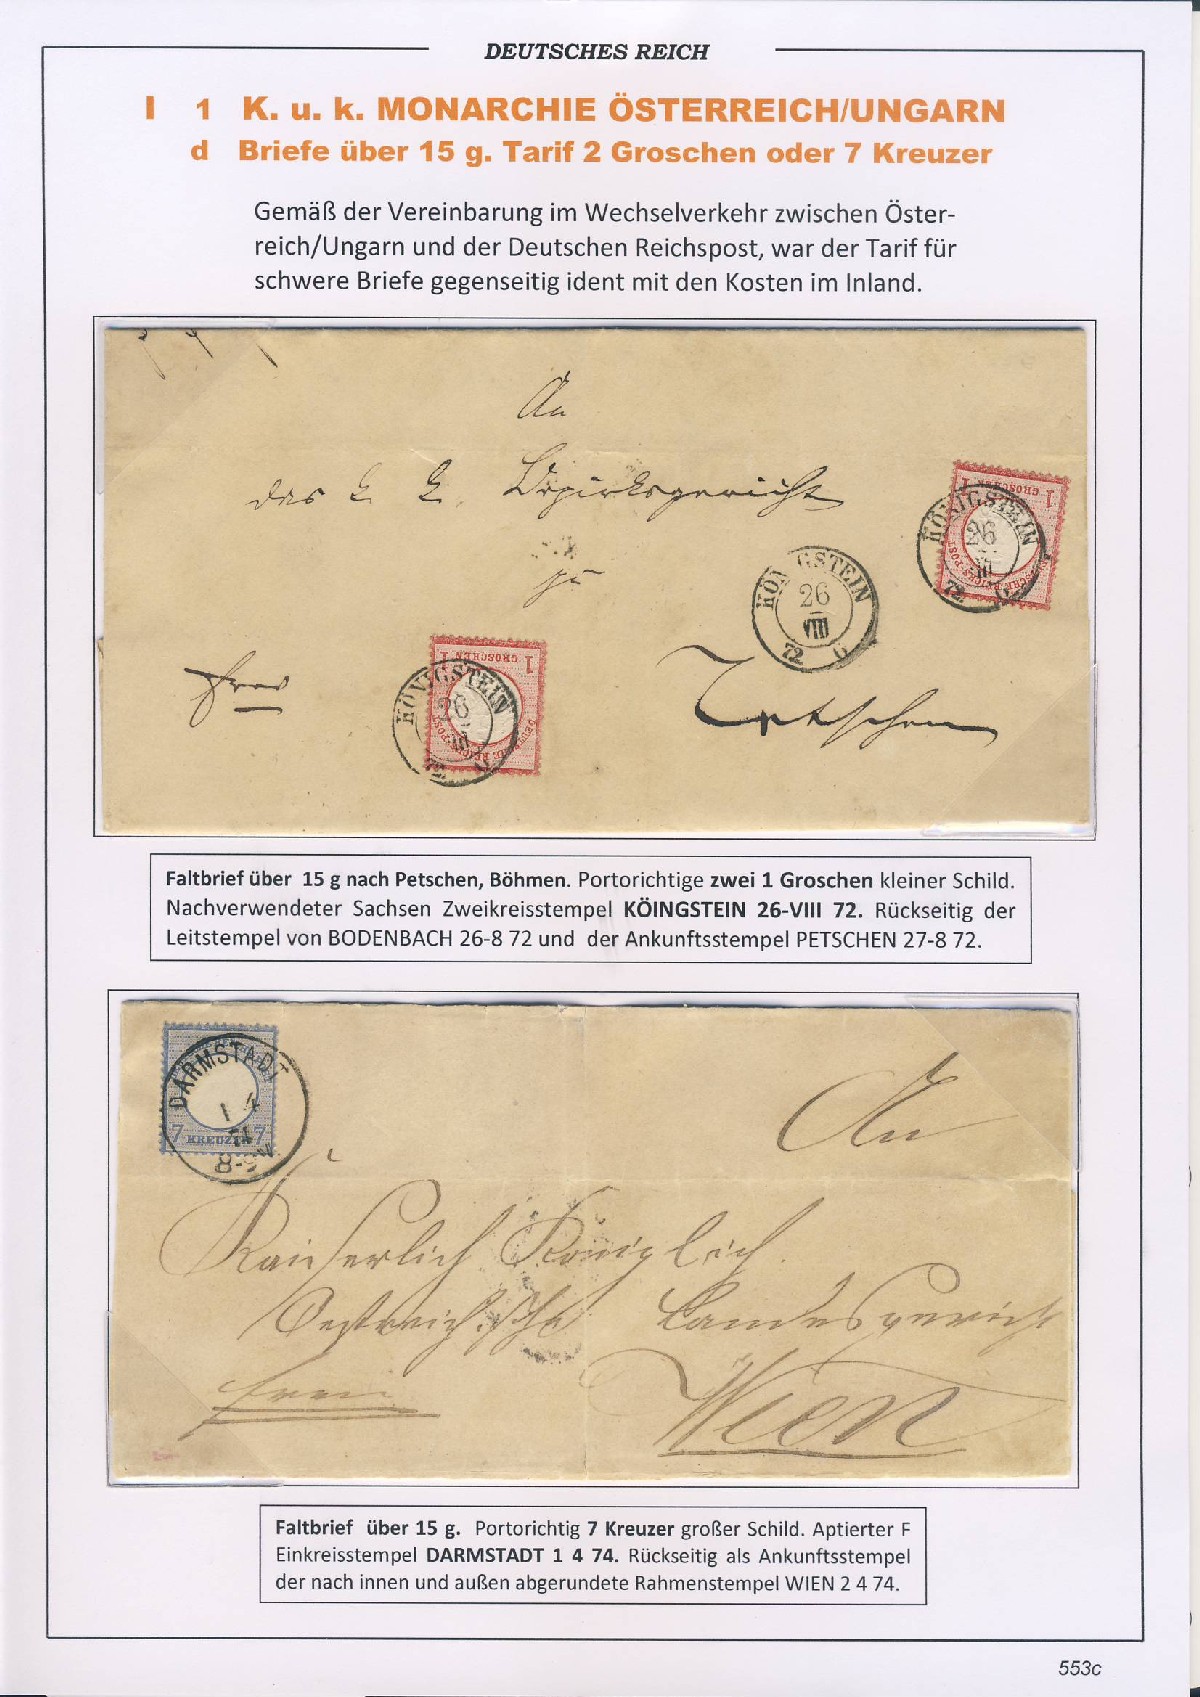 DEUTSCHES REICH
I 1 K. u. k. MONARCHIE ÖSTERREICH/UNGARN
d Briefe über 15 g. Tarif 2 Groschen oder 7 Kreuzer
Gemäß der Vereinbarung im Wechselverkehr zwischen Öster-
reich/Ungarn und der Deutschen Reichspost, war der Tarif für
schwere Briefe gegenseitig ident mit den Kosten im Inland.
An
das k. k. Bezirksgericht
zu
Tetschen
frei
1 GROSCHEN 1
KÖNIGSTEIN
26
VIII
72
KÖNIGSTEIN
26
VIII
72
1 GROSCHEN 1
KÖNIGSTEIN
26
VIII
72
Faltbrief über 15 g nach Petschen, Böhmen. Portorichtige zwei 1 Groschen kleiner Schild.
Nachverwendeter Sachsen Zweikreisstempel KÖINGSTEIN 26-VIII 72. Rückseitig der
Leitstempel von BODENBACH 26-8 72 und der Ankunftsstempel PETSCHEN 27-8 72.
DARMSTADT
1 4
74
8-9V
7 KREUZER 7
An
Kaiserlich Königlich
Oestreichische Landesgericht
frei
Wien
Faltbrief über 15 g. Portorichtig 7 Kreuzer großer Schild. Aptierter F
Einkreisstempel DARMSTADT 1 4 74. Rückseitig als Ankunftsstempel
der nach innen und außen abgerundete Rahmenstempel WIEN 2 4 74.
553c